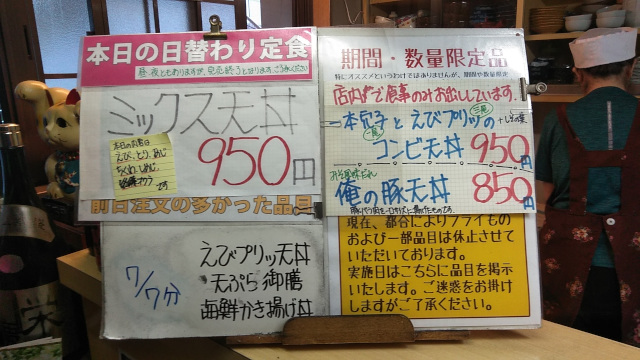 本日の日替わり定食
昼・夜ともありますが、完売終了となります。ご了承ください
ミックス天丼
本日の内容は
えび、とり、あじ
ちくわ、しめじ、
です
950円
前日注文の多かった品目
7/7分
えびプリッツ天丼
天ぷら御膳
海鮮かき揚げ丼
期間・数量限定品
特にオススメというわけではありませんが、期間や数量限定
店内で食事のみお出ししています。
一本穴子とえびプリッツの
コンビ天丼 950円
俺の豚天丼 850円
現在、都合によりフライもの
および一部品目は休止させて
いただいております。
実施日はこちらに品目を掲示
いたします。ご迷惑をお掛け
しますがご了承ください。
栄